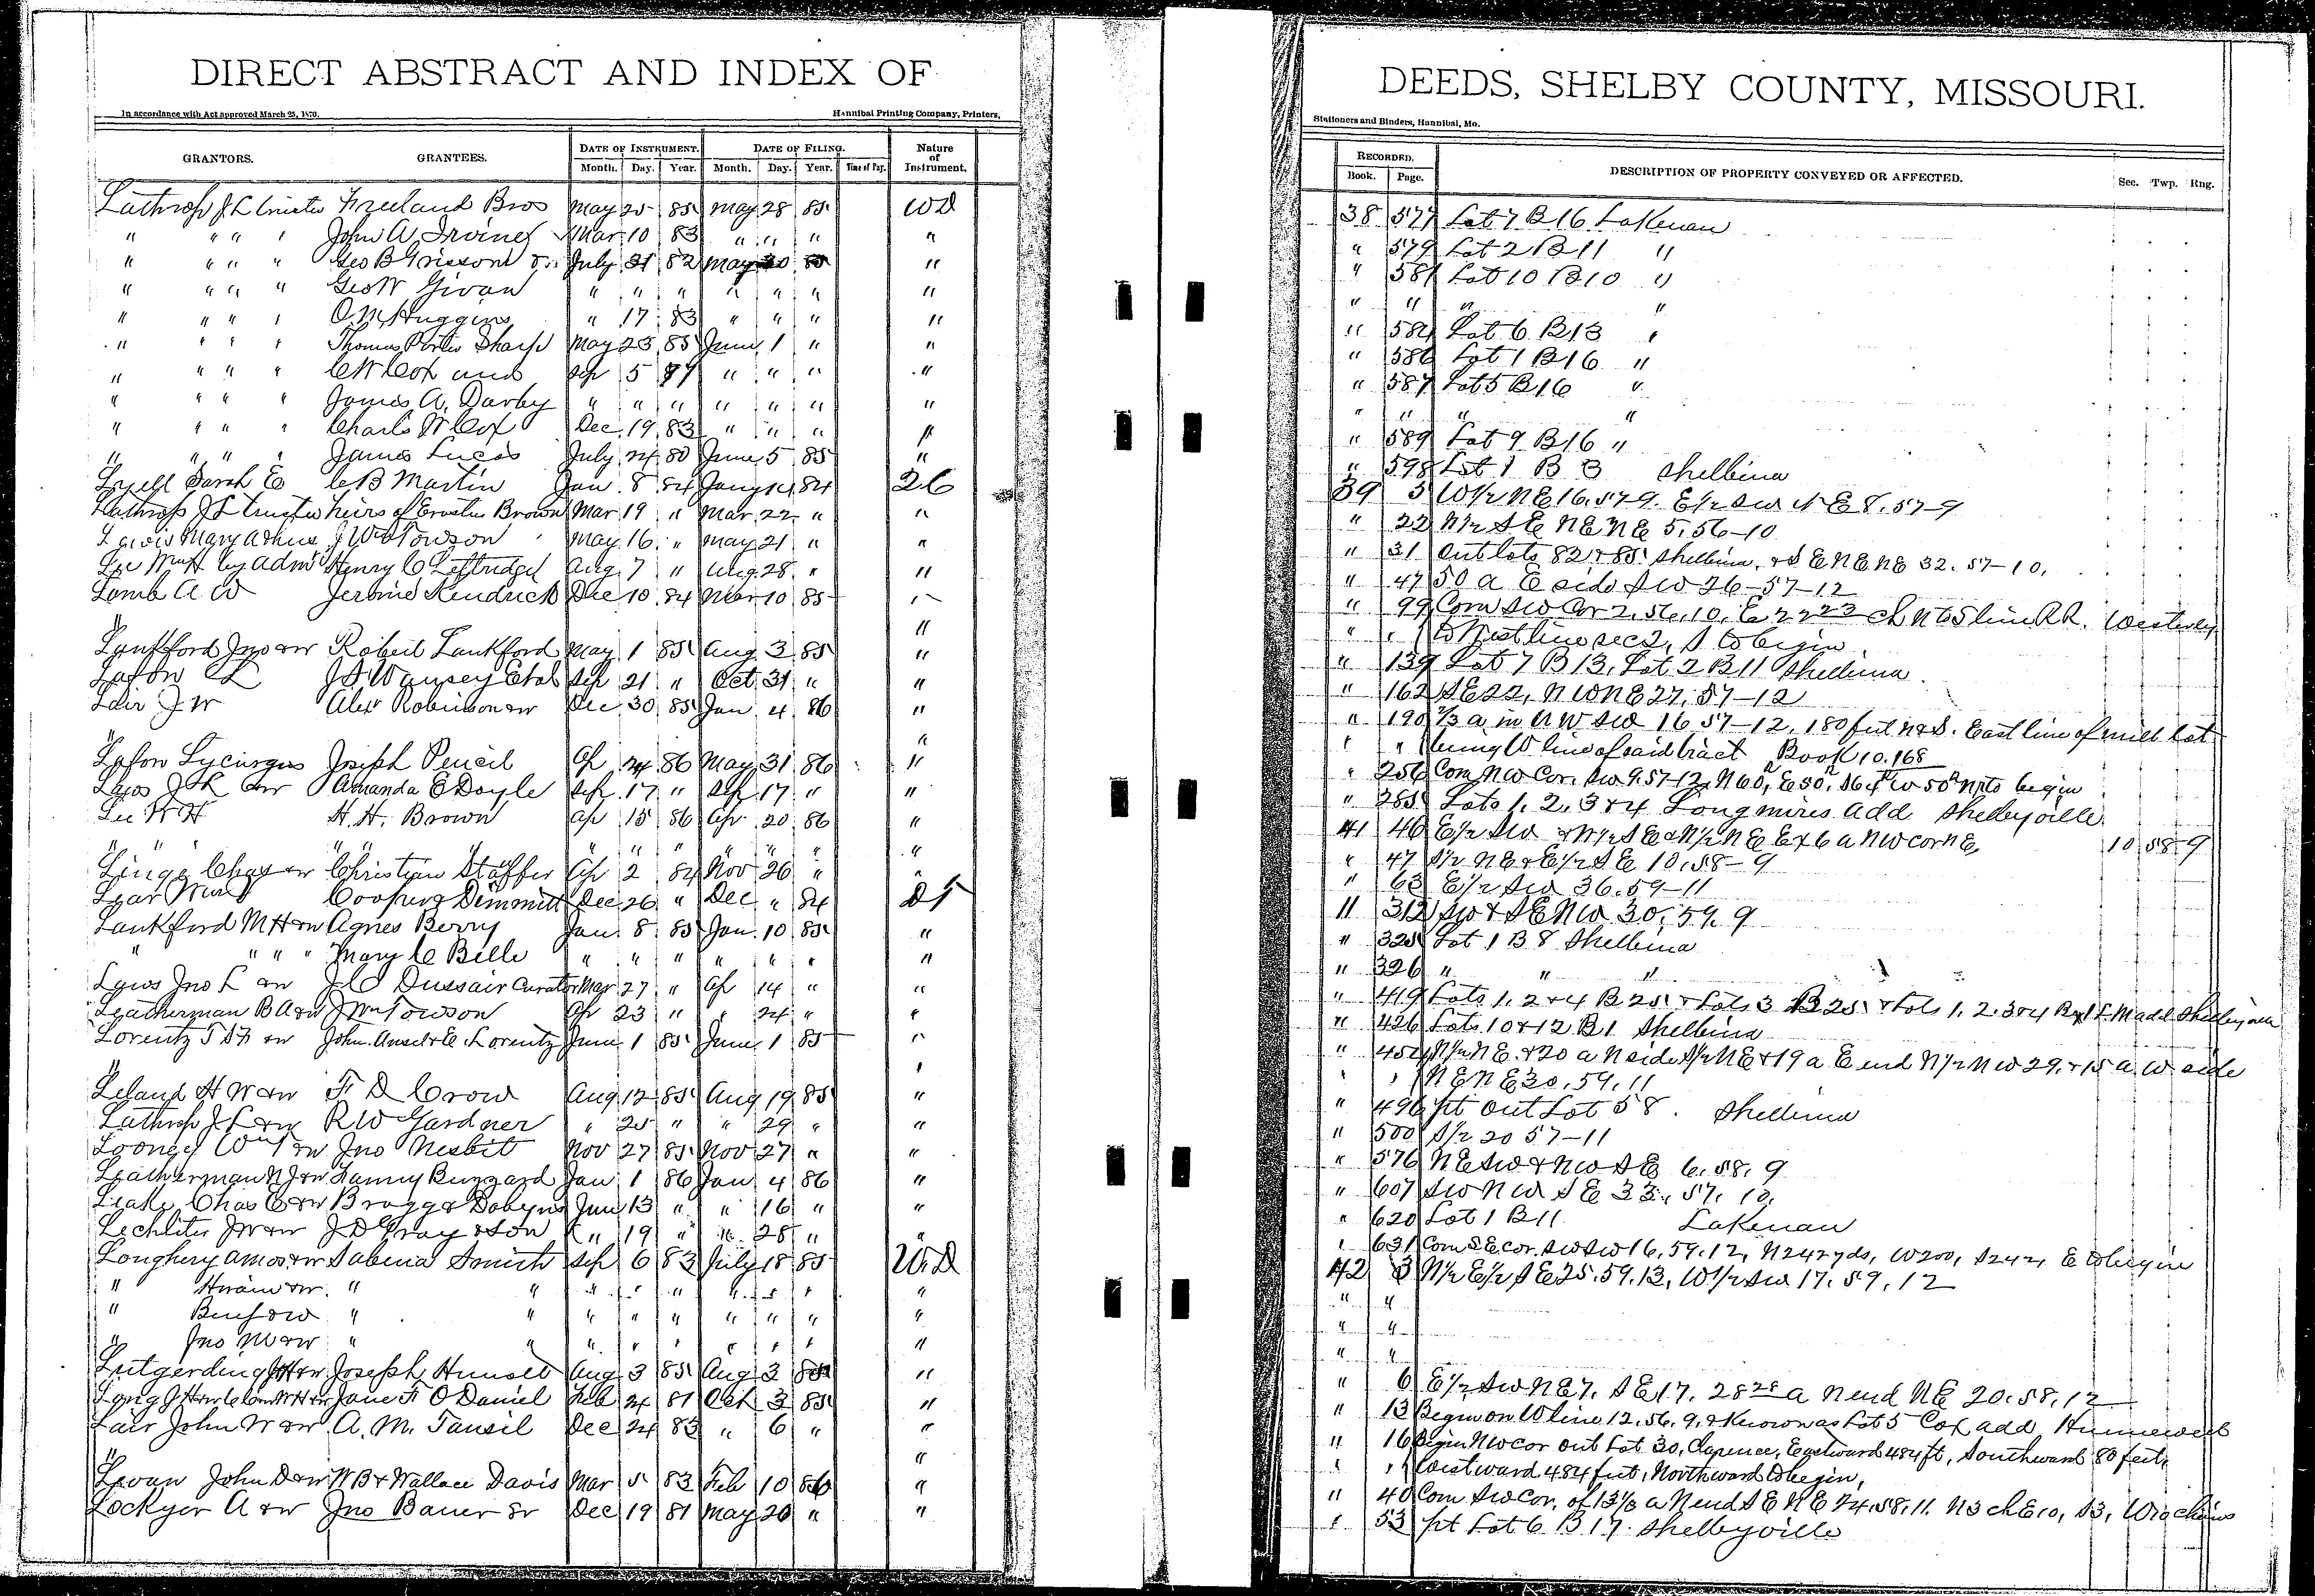 DIRECT ABSTRACT AND INDEX OF
In accordance with Act approved March 25, 1870. Hannibal Printing Company, Printers,
GRANTORS. GRANTEES. DATE OF INSTRUMENT. DATE OF FILING. Nature of Instrument.
Month. Day. Year. Month. Day. Year. Time of Day.
Lathrop J L Trustee Freeland Bros May 25 85 May 28 85 WD
" " " " John A Irvine Mar 10 83 " " " "
" " " " Geo B Grissom July 31 82 May "
" " " " Geo W Givan " " " " " " "
" " " " O. M. Huggins " 17 83 " " " "
" " " " Thomas Porter Sharp May 23 85 June 1 " "
" " " " C W Cox and Sep 5 " " " "
" " " " James A. Darby " " " " " " "
" " " " Charls W Cox Dec 19 83 " " " "
" " " " James Lucas July 24 80 June 5 85 "
Lyell Sarah E C B Martin Jan 8 84 Jany 14 84 26
Lathrop J L trustee heirs of Erastus Brown Mar 19 " Mar 22 " "
Lewis Mary J W Towson May 16 " May 21 " "
Lee by adm Henry C Leftridge Aug 7 " Aug 28 " "
Lamb A W Jerome Kendrick Dec 10 84 Mar 10 85
"
Lankford Jno & w Robert Lankford May 1 85 Aug 3 85 "
Lafon L J S Wansey Etal Sep 21 " Oct 31 " "
Lair J W Alexr Robinson & w Dec 30 85 Jan 4 86 "
" "
Lafon Lycurgus Joseph Pencil Ap 24 86 May 31 86 "
Laws J L & w Amanda E Doyle Sep 17 " Sep 17 " "
Lee W H H. H. Brown Ap 15 86 Ap 20 86 "
" " " " " " " " " " "
Linge Chas & w Christian Stoffer Ap 2 84 Nov 26 " "
Lear Cooper & Dimmitt Dec 26 " Dec " 84 DT
Lankford M H & w Agnes Berry Jan 8 85 Jan 10 85 "
" " " " Mary C Belle " " " " " " "
Laws Jno L & w J C Dussair Curator Mar 27 " Ap 14 " "
Leatherman B A & w J Wm Towson Ap 23 " " 24 " "
Lorentz & w John Ansel & C. Lorentz June 1 85 June 1 85 "
"
Leland H W & w F D Crow Aug 12 85 Aug 19 85 "
Lathrop J L & w R W Gardner " 25 " " 29 " "
Looney Wm T & w Jno Nesbit Nov 27 85 Nov 27 " "
Leatherman N J & w Fanny Buzzard Jan 1 86 Jan 4 86 "
Leake Chas C & w Bragg & Dobyns Jan 13 " " 16 " "
Lechliter J W & w J D Gray & Son " 19 " " 28 " "
Loughery Amos & w Sabina Smith Sep 6 83 July 18 85 W.D
" Hiram & w " " " " " " " " "
" Benj & w " " " " " " " " "
" Jno M & w " " " " " " " " "
Lutgerding & w Joseph Hunolt Aug 3 85 Aug 3 85 "
Long J H & w Jane F O Daniel Feb 24 81 Oct 3 85 "
Lair John W & w A. M. Tansil Dec 24 83 " 6 " "
" "
Levan John D & w W B & Wallace Davis Mar 5 83 Feb 10 86 "
Lockyer A & w Jno Bauer Sr Dec 19 81 May 20 " "
DEEDS, SHELBY COUNTY, MISSOURI.
Stationers and Binders, Hannibal, Mo.
RECORDED. DESCRIPTION OF PROPERTY CONVEYED OR AFFECTED. Sec. Twp. Rng.
Book. Page.
38 577 Lot 7 B 16 Lakenan
" 579 Lot 2 B 11 "
" 581 Lot 10 B 10 "
" " " "
" 584 Lot 6 B 13 "
" 586 Lot 1 B 16 "
" 587 Lot 5 B 16 "
" " " "
" 589 Lot 9 B 16 "
" 598 Lot 1 B 3 Shelbina
39 3 W 1/2 NE 16.57 9. E 1/2 SW NE 8.57-9
" 22 N 1/2 SE NE NE 5.56-10
" 31 Out lots 82 & 85 Shelbina, & SE NE NE 32.57-10.
" 47 50 a E side SW 26-57-12
" 99 Com SW Cor 2.56.10. E 22 23 ch N to S line RR. Westerly
" " to West line sec 2, S to begin
" 139 Lot 7 B 13, Lot 2 B 11 Shelbina
" 162 SE 22, NW NE 27, 57-12
" 190 1/3 a in NW SW 16 57-12, 180 feet N & S. East line of mill lot
" " being W line of said tract Book 10.168
" 256 Com NW Cor. SW 9.57-12, N 60, E 50, S 64 W 50 N to begin
" 285 Lots 1, 2, 3 & 4 Longmires Add Shelbyville
41 46 E 1/2 SW & N 1/2 SE & N 1/2 NE Ex 6 a NW cor NE, 10 58 9
" 47 S 1/2 NE & E 1/2 SE 10.58-9
" 63 E 1/2 SW 36.59-11
" 312 SW & SE NW 30, 59, 9
" 325 Lot 1 B 8 Shelbina
" 326 " " "
" 419 Lots 1, 2 & 4 B 25 & Lots 3 B 25 & Lots 1. 2. 3 & 4 Add Shelbyville
" 426 Lots 10 & 12 B 1 Shelbina
" 452 N 1/2 NE & 20 a N side S 1/2 NE & 19 a E end N 1/2 NW 29, & 15 a. W. side
" " NE NE 30, 59, 11
" 496 pt Out Lot 58. Shelbina
" 500 S 1/2 20 57-11
" 576 NE SW & NW SE 6, 58, 9
" 607 SW NW SE 33, 57, 10,
" 620 Lot 1 B 11 Lakenan
" 631 Com SE cor. SW SW 16, 59.12, N 242 yds, W 200, S 242, E to begin
42 3 N 1/2 E 1/2 SE 25.59.13, W 1/2 SW 17.59.12
" "
" "
" "
" 6 E 1/2 SW NE 7, SE 17. 28 28 a N end NE 20.58.12
" 13 Begin on W line 12.56.9, & Known as Lot 5 Cox add Hunnewell
" 16 Begin NW cor out Lot 30, Clarence, Eastward 484 ft, Southward 80 feet,
" " Westward 484 feet, Northward to begin,
" 40 Com SW Cor. of 13 1/3 a N end SE NE 24,58,11. N 3 ch E 10, S 3, W 10 chains
" 53 pt Lot 6 B 17. Shelbyville